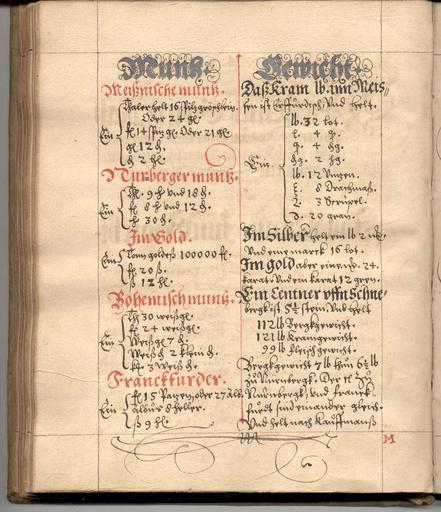 Müntz.
Meißnische müntz.
Thaler helt 16 Spitzgröschlein.
Oder 24 gl.
Ein
fl 14 Oder 21 gl.
gl 12 h.
h 2 hl.
Nurberger müntz.
9 h vnd 18 h.
Ein
fl 8 h vnd 12 h.
h 30 h.
Im Gold.
Ein
Tonn goldeß 100000 fl.
fl 20 ß.
ß 12 hl.
Bohemisch müntz.
30 weißgl.
fl 24 weißgl.
Ein
Weißgl 7 h.
Weisch 2 klein h.
3 Weiß h.
Franckfurder.
fl 15 Patzen, oder 27 Alb.
Ein
albus 8 heller.
ß 9 hl.
Gewicht.
Daß Kram lb. inn Meis//
sen ist Erffurdisch, Vnd helt.
lb. 32 lot.
l. 4 q.
q. 4 hg.
Ein
hg. 2 hg.
lb. 12 Vntzen.
8 Drachmaß.
3 Scrupel.
20 gran.
Im Silber helt ein lb 2
Vnd eine marck 16 lot.
Im gold aber eine 24.
karat. Vnd ein karat 12 gren.
Ein Centner vffn Schne
bergk ist 5½ stein, Vnd helt
112 lb Bergkgewicht.
121 lb Kramgewicht.
99 lb Fleischgewicht.
Bergkgewicht 7 lb thun 6½ lb
zu Nürnbergk. Der
Nürnbergk, Vnd Franck-
furdt sind einander gleich.
Vnd helt nach Kauffmanß
M